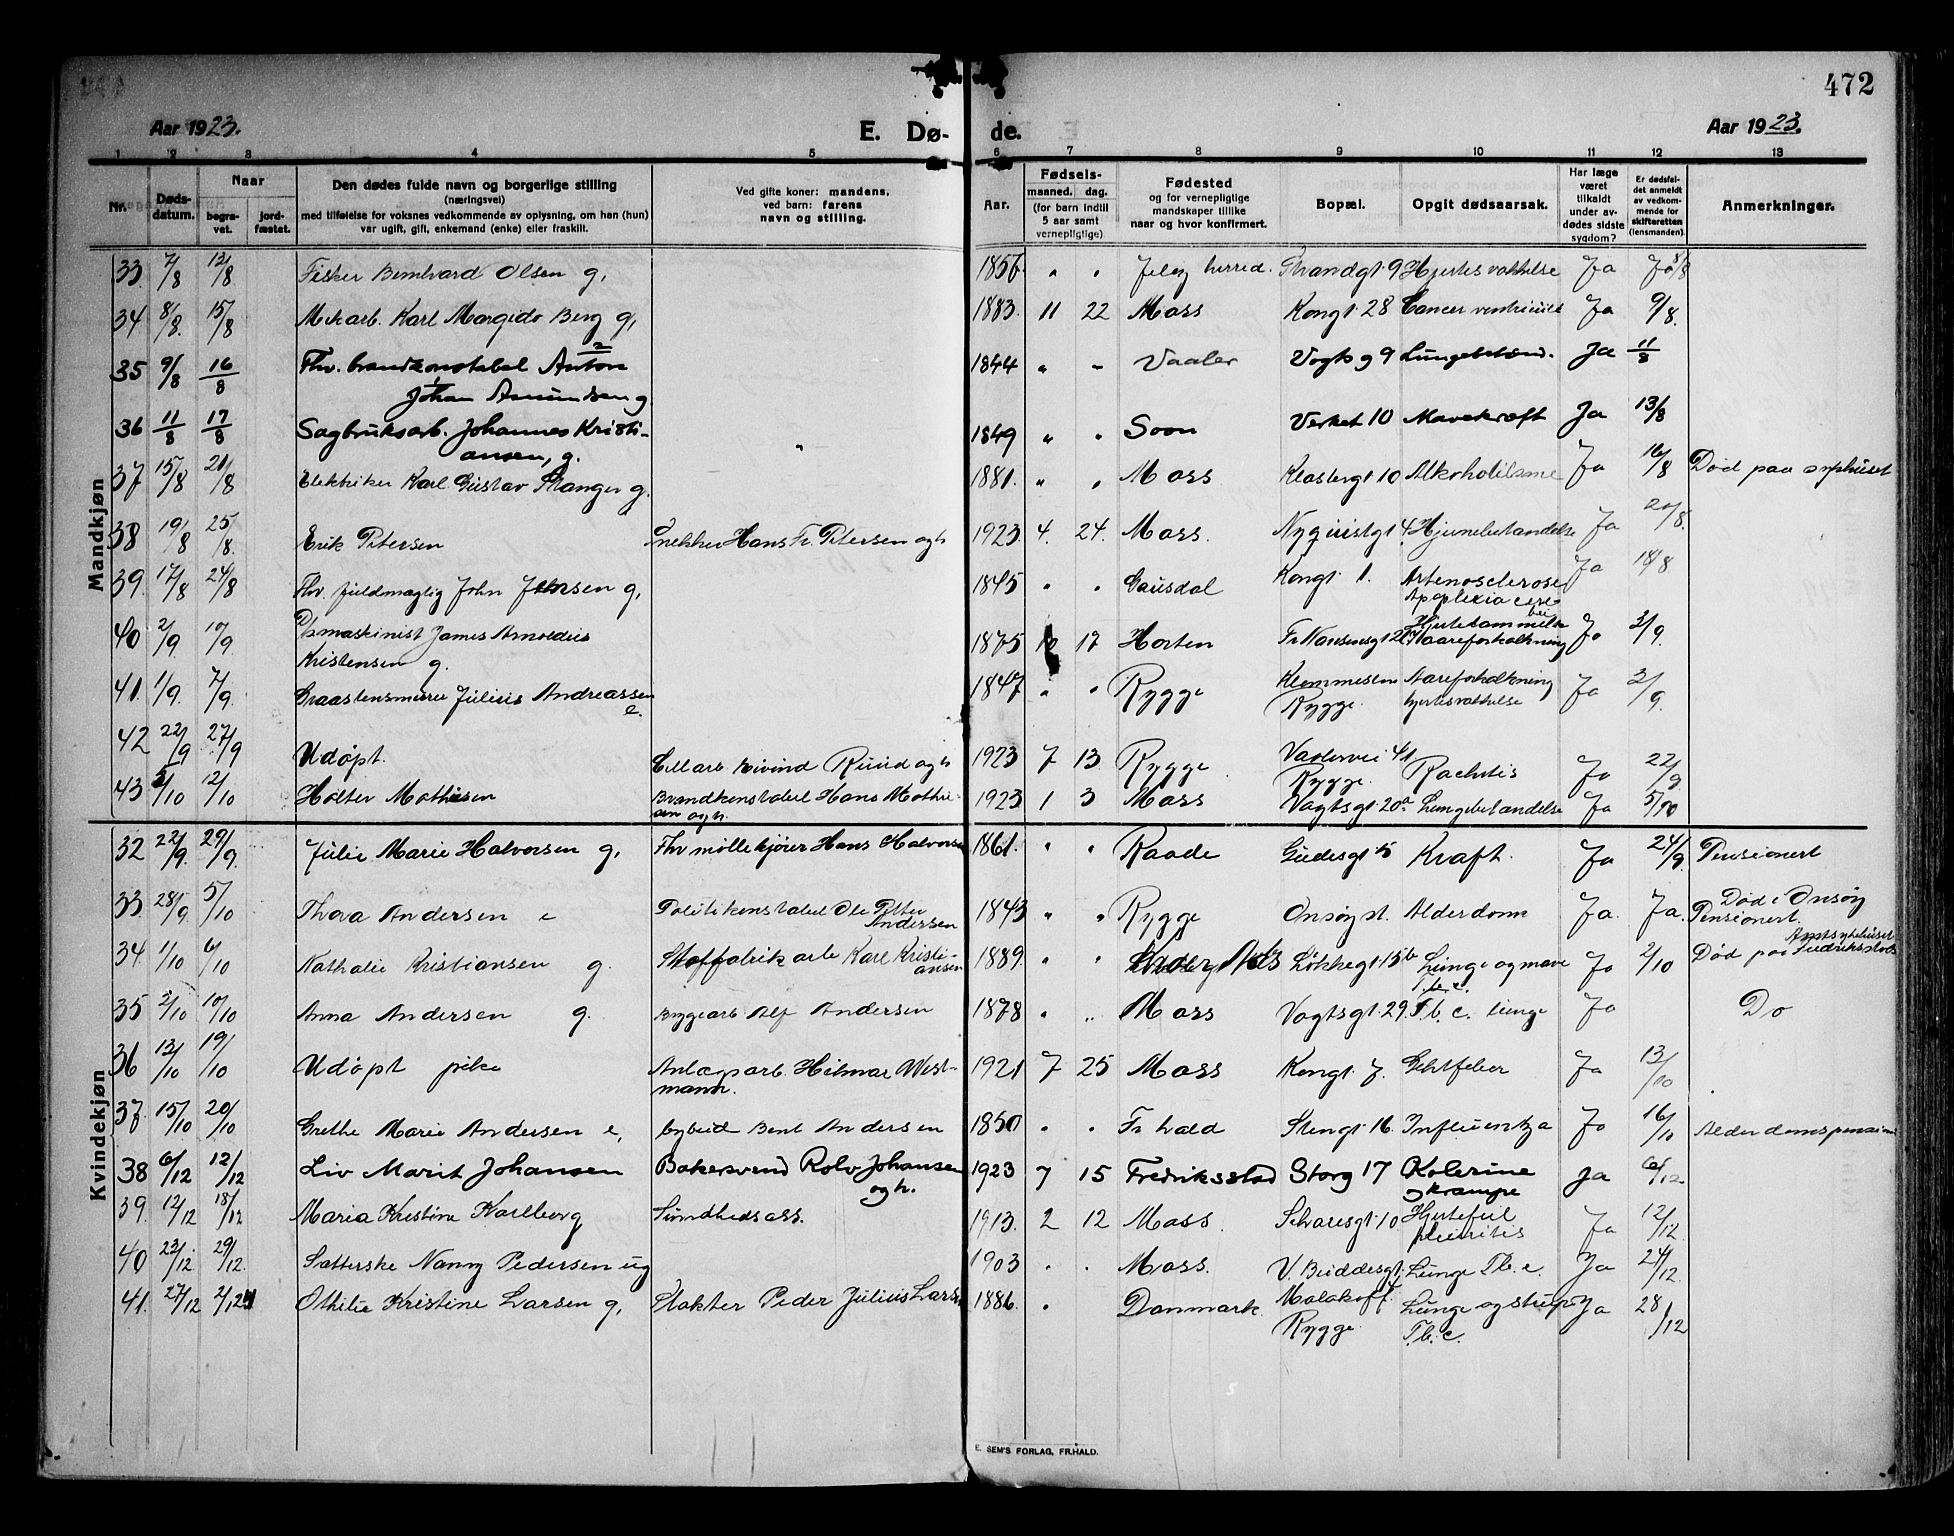 472
Aar 1923.
E. Dø-
de.
Aar 1923.
1 2 3 4 5 6 7 8 9 10 11 12 13
Nr.
Døds-
datum.
Naar
begra-
vet.
jord-
fæstet.
Den dødes fulde navn og borgerlige stilling
(næringsvei)
med tilføielse for voksnes vedkommende av oplysning, om han (hun)
var ugift, gift, enkemand (enke) eller fraskilt.
Ved gifte koner: mandens,
ved barn: farens
navn og stilling.
Aar.
Fødsels-
maaned. dag.
(for barn indtil
5 aar samt
vernepligtige)
Fødested
og for vernepligtige
mandskaper tillike
naar og hvor konfirmert.
Bopæl.
Opgit dødsaarsak.
Har læge
været
tilkaldt
under av-
dødes sidste
sygdom?
Er dødsfal-
det anmeldt
av vedkom-
mende for
skifteretten
(lensmanden).
Anmerkninger.
Mandkjøn
33. 7/8 13/8 Fisker Bernhard Olsen g, 1856 " " Jeløy herred. Strandgt. 9 Hjertesvækkelse Ja Ja 8/8
34 8/8. 15/8 Mek arb. Karl Margido Berg g, 1883. 11 22 Moss Kongt. 28 Cancer ventriculi Ja 9/8.
35 9/8 16/8 Fhv. brandkonstabel Anton
Johan Amundsen g. 1844 " " Vaaler Vogts g 9 Lungebetænd. Ja 11/8
36 11/8 17/8 Sagbruksarb. Johannes Kristi-
ansen, g. 1849 " " Soon Verket 10 Mavekræft Ja 13/8
37 15/8 21/8 Elektriker Karl Gustav Stanger g. 1881. " " Moss Klostergt 10 Alkoholisme Ja 16/8 Død paa syghuset
38 19/8 25/8. Erik Petersen Snekker Hans Fr. Petersen og h 1923 4. 24. Moss. Nyquistgt 4. Hjernebetændelse Ja 20/8.
39. 17/8 24/8 Fhv. fuldmægtig John Jensen g, 1845 " " Gausdal Kongt 1. Arteriosclerose
Apoplexia cere-
bri Ja 18/8
40 2/9. 10/9 maskinist James Arnoldus
Kristensen g. 1875 17 Horten Fr Nansensgt Hjertelammelse
Aareforkalkning Ja 3/9.
41. 1/9. 7/9 Graastensmurer Julius Andreassen
e. 1847 " " Rygge Klommesten
Rygge Aareforkalkning
hjertesvækkelse Ja 3/9.
42 22/9 27/9 Udøpt. Cellarb Eivind Ruud og h 1923 7 13 Rygge Vaalervei 41
Rygge Rachitis Ja 22/9
43 3/10 12/10 Holter Mathisen Brandkonstabel Hans Mathi-
sen og h. 1923 1 3 Moss Vogtsgt. 20a Lungebetændelse Ja 5/10
Kvindekjøn
32 22/9. 29/9. Julie Marie Halvorsen g, Fhv møllekjører Hans Halvorsen 1861. " " Raade Gudesgt 15 Kræft. Ja 24/9 Pensionert
33. 28/9 5/10 Thora Andersen e Politikonstabel Ole Petter
Andersen 1843 " " Rygge Onsøy st. Alderdom Ja. Ja. Død i Onsøy
Pensionert.
34. 1/10 6/10 Nathalie Kristiansen g. Stoffabrik arb Karl Kristi-
ansen 1889. " " Løkkegt 15b Lunge og mave
T.b.c. Ja 2/10 Død paa Amtsykehuset
Fredriksstad
35 3/10 10/10 Anna Andersen g. Byggearb Alf Andersen 1878 " " Moss Vogtsgt 29. T.b.c. lunge Ja Do
36 13/10 19/10 Udøpt pike Anlægsarb. Hilmar West-
mann. 1921 7 25 Moss Kongt. 7. Ja 13/10
37 15/10 20/10 Grethe Marie Andersen e, Bernt Andersen 1850 " " Fr hald Stengt. 16. Influentza Ja 16/10 Alderdomspension
38 6/12 12/12 Liv Marit Johansen Bakersvend Rolv Johansen
og h. 1923 7 15 Fredriksstad Storg 17 Kolerine
og krampe Ja 6/12
39. 12/12 18/12 Maria Kristine Karlborg Sundhedsass. 1913. 2 12 Moss. 10 Hjertefeil
pleuritis Ja 12/12.
40 23/12. 29/12. Sætterske Nanny Pedersen ug 1903 " " Moss. V. Buddesgt Lunge Tb.c. Ja 24/12.
41. 27/12 2/1 24 Othilie Kristine Larsen g, Slakter Peder Julius Larsen 1886. " Danmark. Malakoff
Rygge Lunge og strupe
T.b.c. Ja 28/12
E. SEM'S FORLAG, FR.HALD.